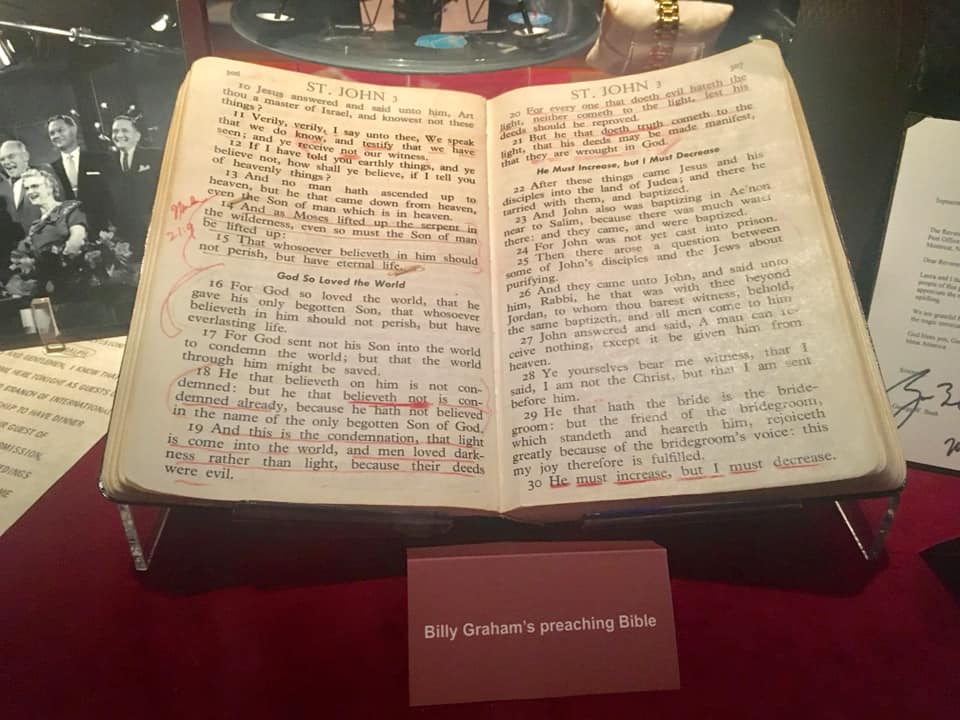 306
ST. JOHN 3
10 Jesus answered and said unto him, Art
thou a master of Israel, and knowest not these
things?
11 Verily, verily, I say unto thee, We speak
that we do know, and testify that we have
seen; and ye receive not our witness.
12 If I have told you earthly things, and ye
believe not, how shall ye believe, if I tell you
of heavenly things?
13 And no man hath ascended up to
heaven, but he that came down from heaven,
even the Son of man which is in heaven.
14 And as Moses lifted up the serpent in
the wilderness, even so must the Son of man
be lifted up:
15 That whosoever believeth in him should
not perish, but have eternal life.
21:9
God So Loved the World
16 For God so loved the world, that he
gave his only begotten Son, that whosoever
believeth in him should not perish, but have
everlasting life.
17 For God sent not his Son into the world
to condemn the world; but that the world
through him might be saved.
18 He that believeth on him is not con-
demned: but he that believeth not is con-
demned already, because he hath not believed
in the name of the only begotten Son of God.
19 And this is the condemnation, that light
is come into the world, and men loved dark-
ness rather than light, because their deeds
were evil.
ST. JOHN 3
307
20 For every one that doeth evil hateth the
light, neither cometh to the light, lest his
deeds should be reproved.
21 But he that doeth truth cometh to the
light, that his deeds may be made manifest,
that they are wrought in God.
He Must Increase, but I Must Decrease
22 After these things came Jesus and his
disciples into the land of Judea; and there he
tarried with them, and baptized.
23 And John also was baptizing in Ae'non
near to Salim, because there was much water
there: and they came, and were baptized.
24 For John was not yet cast into prison.
25 Then there arose a question between
some of John's disciples and the Jews about
purifying.
26 And they came unto John, and said unto
him, Rabbi, he that was with thee beyond
Jordan, to whom thou barest witness, behold,
the same baptizeth, and all men come to him
27 John answered and said, A man can re-
ceive nothing, except it be given him from
heaven.
28 Ye yourselves bear me witness, that I
said, I am not the Christ, but that I am sent
before him.
29 He that hath the bride is the bride-
groom: but the friend of the bridegroom,
which standeth and heareth him, rejoiceth
greatly because of the bridegroom's voice: this
my joy therefore is fulfilled.
30 He must increase, but I must decrease.
Billy Graham's preaching Bible
GENTLEMEN, I KNOW THAT
HERE TONIGHT AS GUESTS
BRANCH OF INTERNATIONAL
TO HAVE DINNER
GUEST OF
The Revere
Post Office
Montreat, N
Dear Revere
Laura and I
people of
appreciate the
We are grateful
God bless you,
bless America
Bush